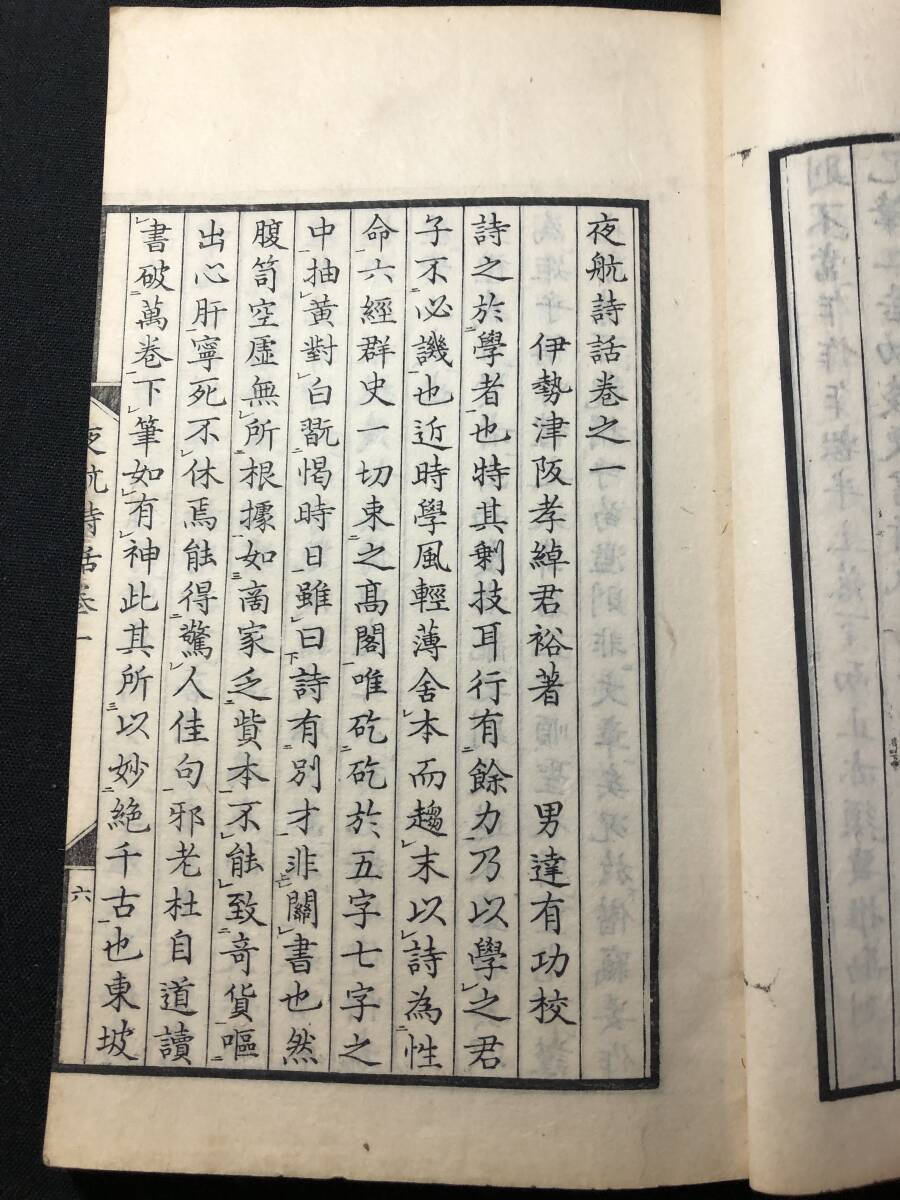 夜航詩話卷之一
伊勢津阪孝綽君裕著 男達有功校
詩之於學者也特其剩技耳行有餘力乃以學之君
子不必譏也近時學風輕薄舍本而趨末以詩為性
命六經群史一切束之高閣唯矻矻於五字七字之
中抽黃對白翫愒時日雖曰詩有別才非關書也然
腹笥空虛無所根據如商家乏貲本不能致奇貨嘔
出心肝寧死不休焉能得驚人佳句邪老杜自道讀
書破萬卷下筆如有神此其所以妙絕千古也東坡
夜航詩話卷一
六